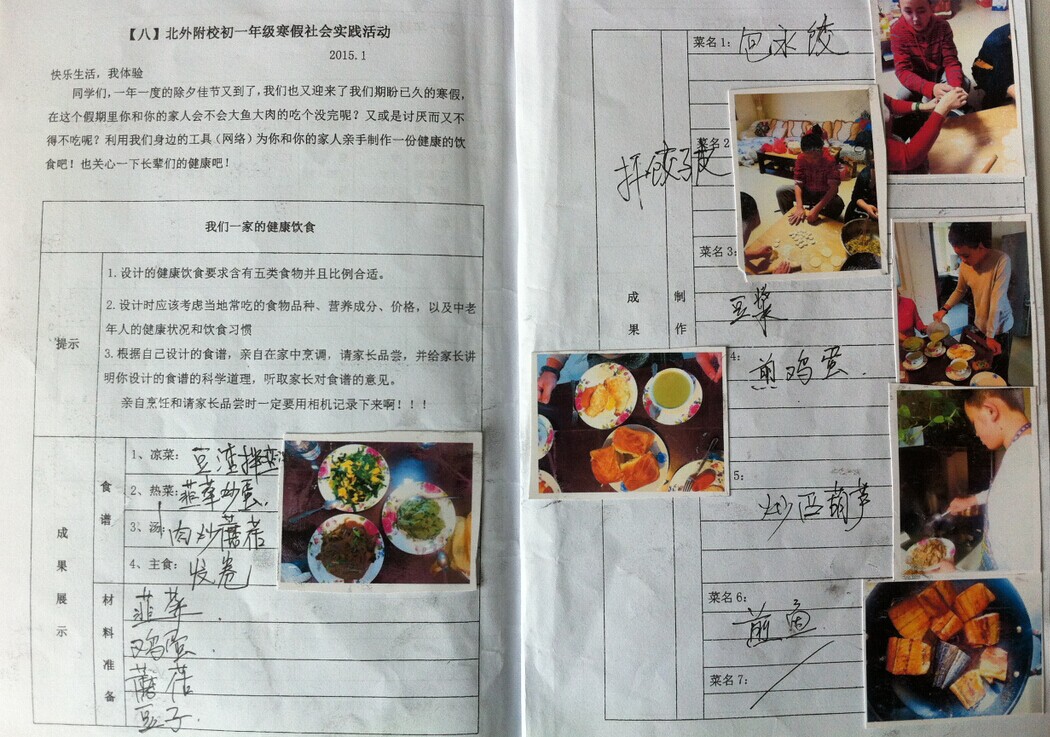 【八】北外附校初一年级寒假社会实践活动
2015.1
快乐生活，我体验
同学们，一年一度的除夕佳节又到了，我们也又迎来了我们期盼已久的寒假，
在这个假期里你和你的家人会不会大鱼大肉的吃个没完呢？又或是讨厌而又不
得不吃呢？利用我们身边的工具（网络）为你和你的家人亲手制作一份健康的饮
食吧！也关心一下长辈们的健康吧！
我们一家的健康饮食
提示
1.设计的健康饮食要求含有五类食物并且比例合适。
2.设计时应该考虑当地常吃的食物品种、营养成分、价格，以及中老
年人的健康状况和饮食习惯
3.根据自己设计的食谱，亲自在家中烹调，请家长品尝，并给家长讲
明你设计的食谱的科学道理，听取家长对食谱的意见。
亲自烹饪和请家长品尝时一定要用相机记录下来啊！！！
成果展示
食谱
1、凉菜：豆渣拌
2、热菜：韭菜炒蛋.
3、汤 肉炒蘑菇
4、主食：发卷
材料准备
韭菜.
鸡蛋.
蘑菇
豆子.
成果
制作
菜名1：包水饺
菜名2
擀饺子皮
菜名3：
豆浆
4：
煎鸡蛋.
5：
炒西葫芦
菜名6：
煎鱼
菜名7：